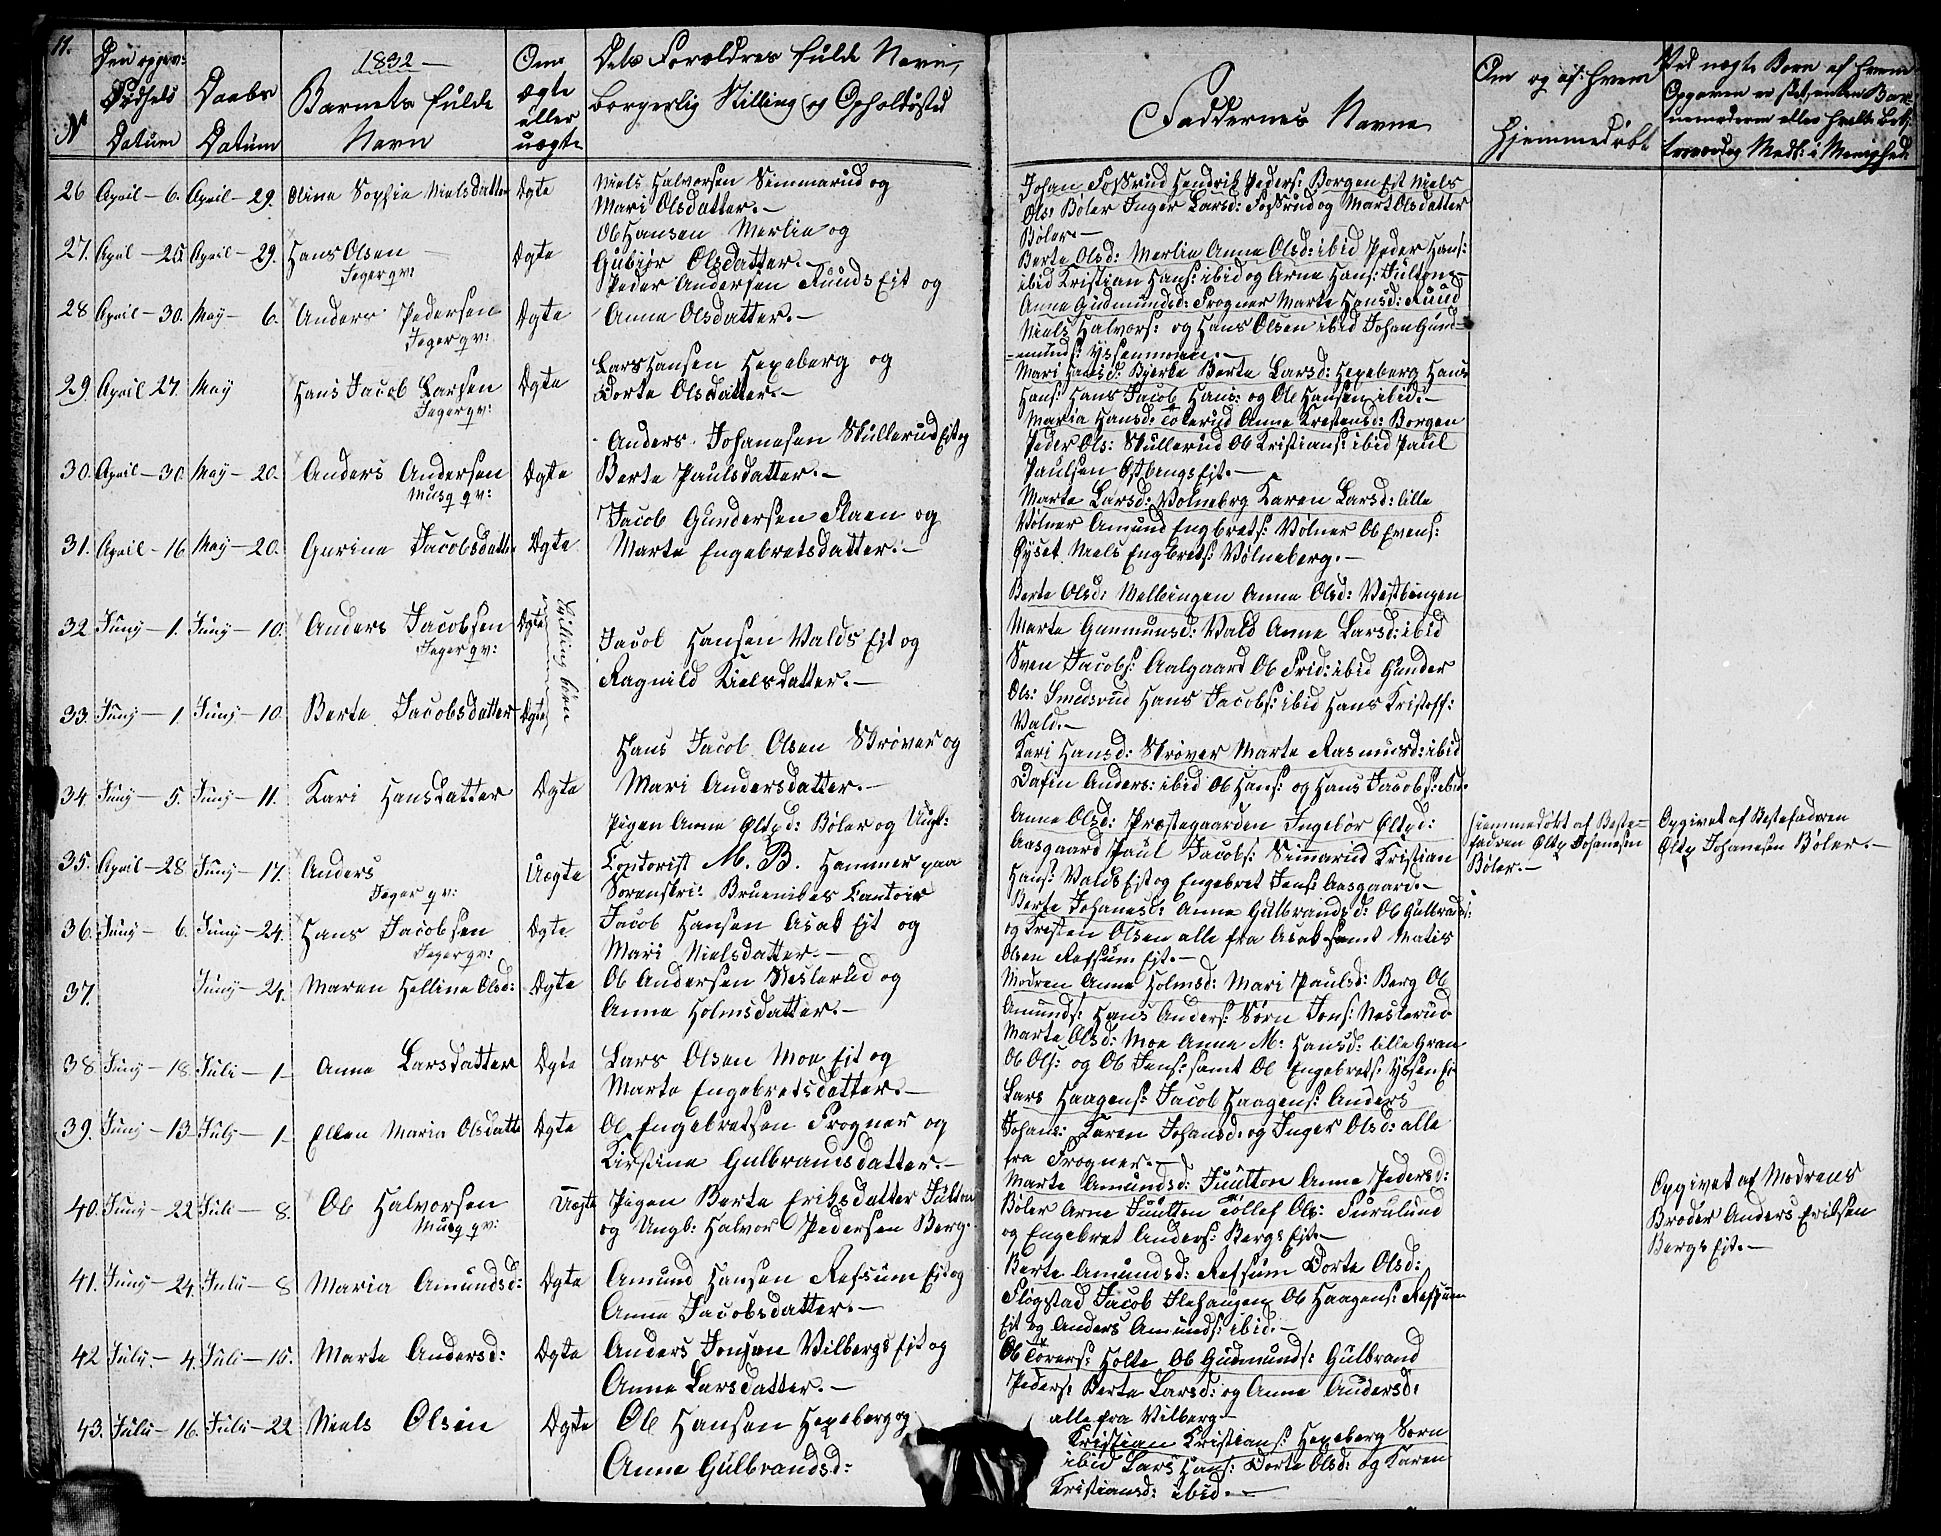 11.
1832
Den opgiv:
Fødsels
Datum
Daabs
Datum
Barnets fulde
Navn
Om
ægte
eller
uægte
Dets Forældres fulde Navn,
borgerlig Stilling og Opholdssted
Faddernes Navne
Om og af hvem
Hjemmedøbt
No
26 April - 6. April - 29. Oline Sophie Nielsdatter Ægte
Niels Halvorsen Simmarud og
Mari Olsdatter.-
Johan Fossrud Hendrik Peders: Borgen Ejt Niels
Ols: Bøler Inger Larsd: Fossrud og Mari Olsdatter
Bøler.-
27. April - 25. April - 29. Hans Olsen Ægte
Jeger qv:
Ole Hansen Merlie og
Gubjør Olsdatter.-
Berte Olsd: Merlie Anne Olsd: ibid Peder Hans:
ibid Kristian Hans: ibid og Arne Hans: Jultone-
28 April - 30. May - 6. Anders Pedersen Ægte
Jeger qv:
Peder Andersen Ruuds Ejt og
Anne Olsdatter.-
Anne Gudmundsd: Frogner Marte Hansd: Ruud
Niels Halvors: og Hans Olsen ibid Johan Gud-
=munds:
29 April 27. May Hans Jacob Larsen Ægte
Jeger qv:
Lars Hansen Hexeberg og
Dorte Olsdatter.-
Mari Hansd: Bjerke Berte Larsd: Hexeberg Hans
Hans: Hans Jacob Hans: og Ole Hansen ibid:-
30. April - 30. May - 20. Anders Andersen Ægte
Musq qv:
Anders Johanesen Skullerud Ejt og
Berte Paulsdatter.-
Maria Hansd: Tokerud Anne Kristensd: Borgen
Peder Ols: Skullerud Ole Kristians: ibid Paul
Paulsen Østbengs Ejt.-
31. April - 16 May - 20. Gurine Jacobsdatt: Ægte
Jacob Gundersen Flaen og
Marte Engebretsdatter.-
Marte Larsd: Vølneberg Karen Larsd: lille
Vølner Amund Engbrets: Vølner Ole Evens:
Øyset Niels Engbrets: Vølneberg.-
32 Juny - 1. Juny - 10. Anders Jacobsen Ægte
Jeger qv:
Tvilling børn
Jacob Hansen Valds Ejt og
Ragnild Kielsdatter.-
33. Juny - 1. Juny - 10. Berte Jacobsdatter Ægte
Berte Olsd: Melbingen Anne Olsd: Vestbingen
Marte Gunmunsd: Vald Anne Larsd: ibid
Sven Jacobs: Aalgaard Ole Frid: ibid Gunder
Ols: Smedsrud Hans Jacobs: ibid Hans Kristoff:
Vald.-
34 Juny - 5. Juny - 11. Kari Hansdatter Ægte
Hans Jacob Olsen Strøver og
Mari Andersdatter.-
Kari Hansd: Strøver Marte Rasmusd: ibid
Dafin Anders: ibid Ole Hans: og Hans Jacobs: ibid.
35. April - 28 Juny - 17. Anders Uægte
Jeger qv:
Pigen Anne Oltpd: Bøler og Ungk:
Contorist M. B. Hammer paa
Sorenskri: Bruenikes Contoir
Anne Olsd: Præstegaarden Ingebor Oltpd:
Aasgaard Paul Jacobs: Simmarud Kristian
Hans: Valds Ejt og Engebret Jens: Aasgaard.-
Hjemmedøbt af Beste-
fadren Oltp Johanesen
Bøler.-
Opgivet af Bestefadren
Oltp Johanesen Bøler.-
36. Juny - 6. Juny - 24. Hans Jacobsen Ægte
Jeger qv:
Jacob Hansen Asak Ejt og
Mari Nielsdatter.-
Berte Johanesd: Anne Gulbrandsd: Ole Gulbrands:
og Kristen Olsen alle fra Asak samt Matis
Olsen Refsum Ejt.-
37. Juny - 24. Maren Helline Olsd: Ægte
Ole Andersen Neslerud og
Anne Holmsdatter.-
Modren Anne Holmsd: Mari Paulsd: Berg Ole
Amunds: Hans Anders: Sørn Jons: Neslerud
38 Juny - 18. Juli - 1- Anne Larsdatter Ægte
Lars Olsen Moe Ejt og
Marte Engebretsdatter.-
Marte Olsd: Moe Anne M: Hansd: lille Gran
Ole Ols: og Ole Jens: samt Ole Engebrets:
39. Juny - 13- July - 1- Ellen Maria Olsdatt: Ægte
Ole Engebretsen Frogner og
Kirstine Gulbrandsdatter.-
Lars Haagens: Jacob Haagens: Anders
Johans: Karen Johansd: og Inger Olsd: alle
fra Frogner.-
40. Juny - 22 Juli - 8. Ole Halvorsen Uægte
Musq qv:
Pigen Berte Eriksdatter Julton
og Ungk: Halvor Pedersen Berg.
Marte Amundsd: Juulton Anne Pedersd:
Bøler Arne Juulton Tollef Ols: Furulund
og Engebret Anders: Bergs Ejt.-
Opgivet af Modrens
Broder Anders Eriksen
Bergs Ejt.-
41. Juny - 24. Juli - 8 Maria Amundsd: Ægte
Amund Hansen Refsum Ejt og
Anne Jacobsdatter.-
Berte Amundsd: Refsum Dorte Olsd:
Fløgstad Jacob Ilehaugen Ole Haagens: Refsum
Ejt og Anders Amunds: ibid.-
42 Juli - 4. Juli - 15. Marte Andersd: Ægte
Anders Jensen Vilbergs Ejt og
Anne Larsdatter.-
Ole Torers: Holte Ole Gudmunds: Gulbrand
Peders: Berte Larsd: og Anne Andersd:
alle fra Vilberg.-
43. Juli - 16. Juli - 22 Niels Olsen Ægte
Ole Hansen Hexeberg og
Anne Gulbrandsd:
Kristian Kristians: Hexeberg Sørn
ibid Lars Hans: Dorte Olsd: og Karen
Kristiansd: ibid.-